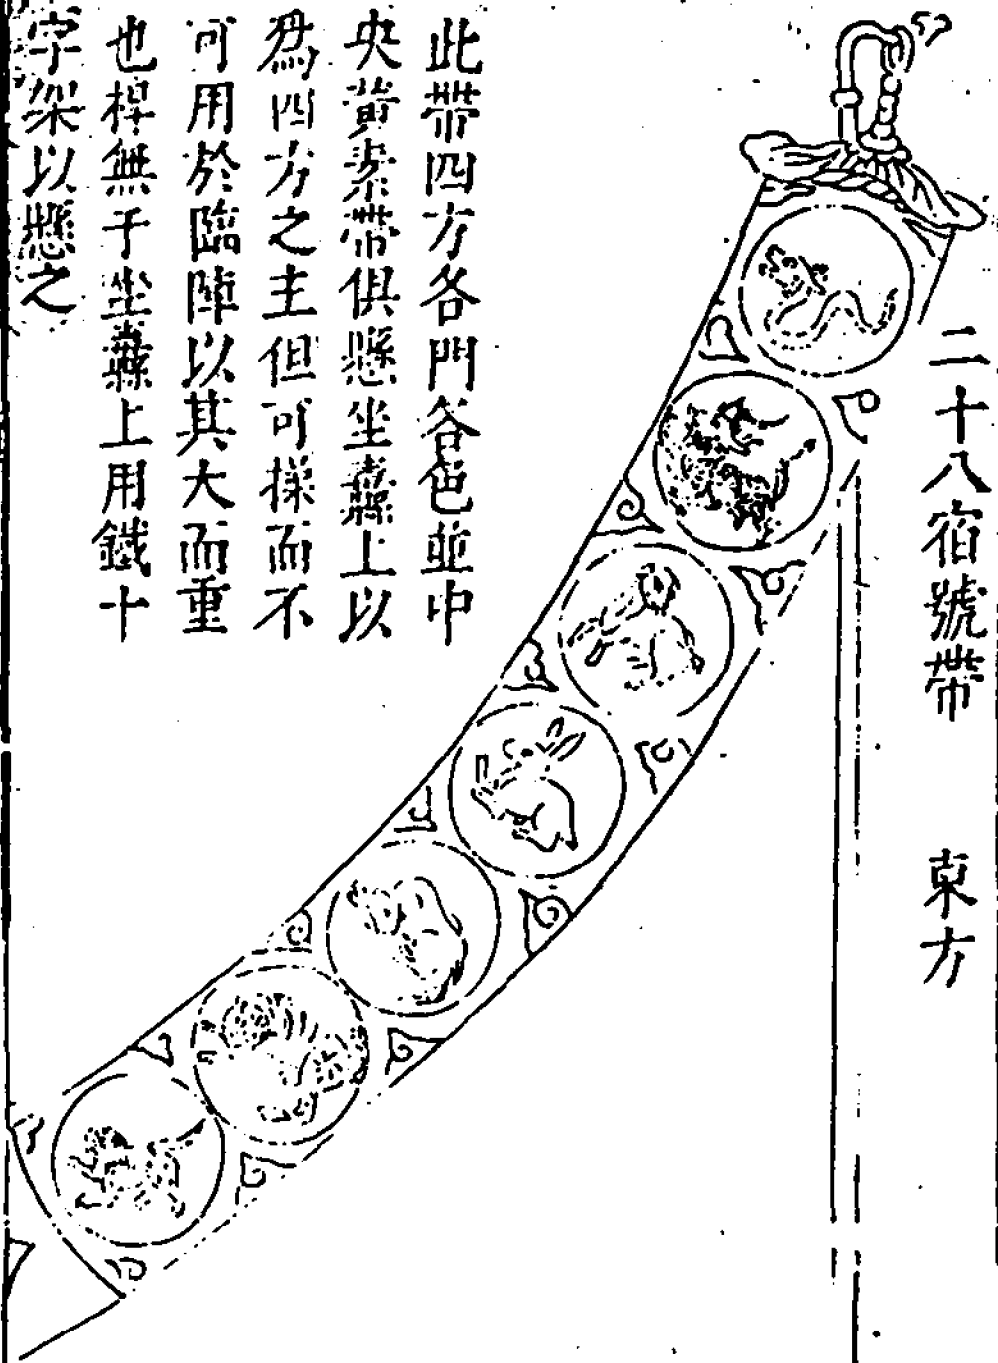 二十八宿號帶　東方
此帶四方各門各色並中
央黃素帶俱懸坐纛上以
為四方之主但可操而不
可用於臨陣以其大而重
也桿無于坐纛上用鐵十
字架以懸之